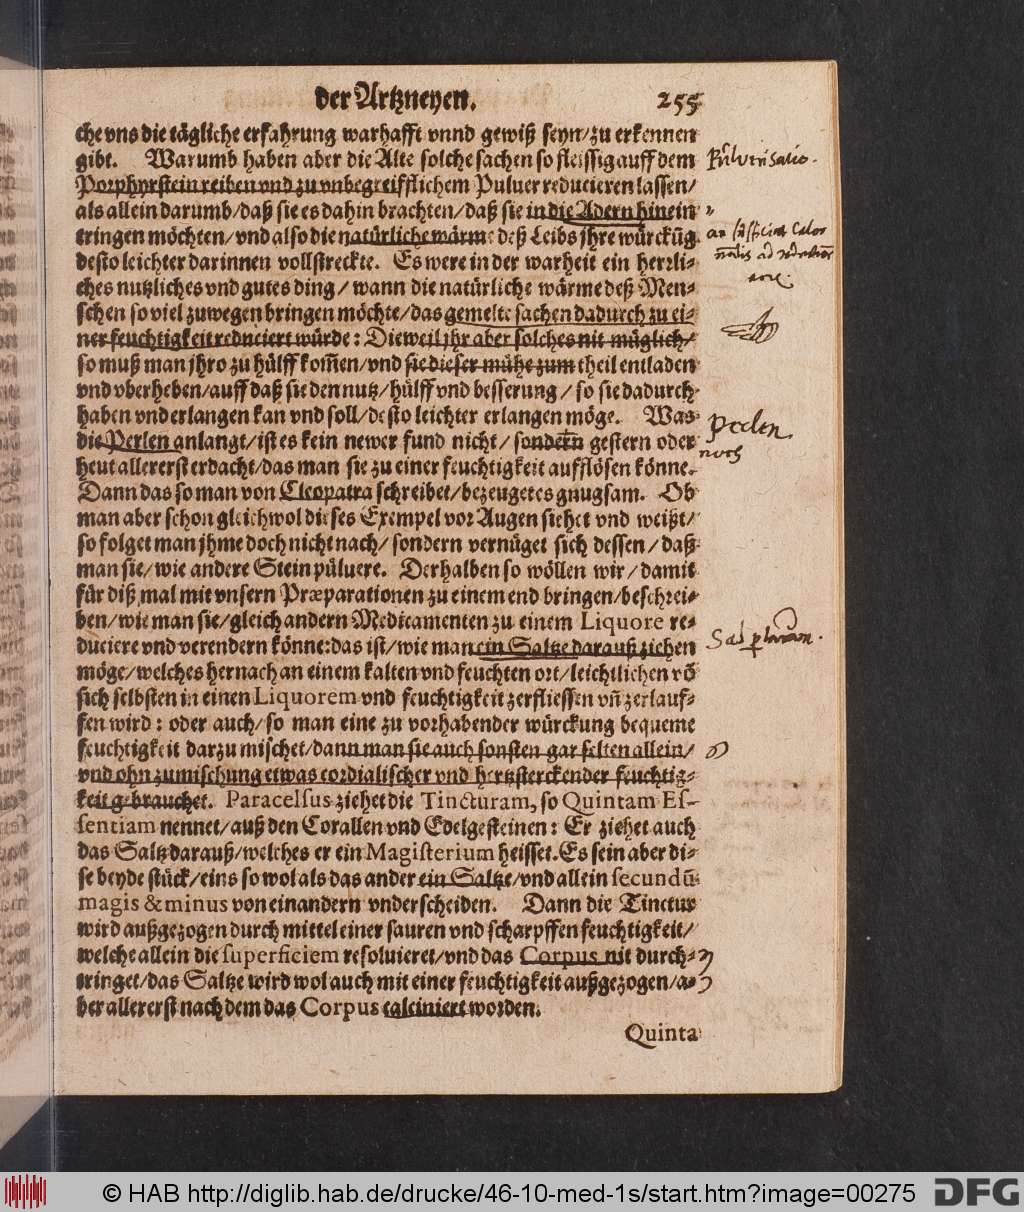 der Artzneyen. 255
che vns die tägliche erfahrung warhafft vnnd gewiß seyn/ zu erkennen
gibt. Warumb haben aber die Alte solche sachen so fleissig auff dem
Porphyrstein reiben vnd zu vnbegreifflichem Puluer reducieren lassen/
als allein darumb/ daß sie es dahin brachten/ daß sie in die Adern hinein
tringen möchten/ vnd also die natürliche wärme deß Leibs jhre würckūg
desto leichter darinnen vollstreckte. Es were in der warheit ein herrli-
ches nutzliches vnd gutes ding/ wann die natürliche wärme deß Men-
schen so viel zuwegen bringen möchte/ das gemelte sachen dadurch zu ei-
ner feuchtigkeit reduciert würde: Dieweil jhr aber solches nit müglich/
so muß man jhro zu hülff kom̃en/ vnd sie dieser mühe zum theil entladen
vnd vberheben/ auff daß sie den nutz/ hülff vnd besserung/ so sie dadurch
haben vnd erlangen kan vnd soll/ desto leichter erlangen möge. Was
die Perlen anlangt/ ist es kein newer fund nicht/ sondern gestern oder
heut allererst erdacht/ das man sie zu einer feuchtigkeit aufflösen könne.
Dann das so man von Cleopatra schreibet/ bezeuget es gnugsam. Ob
man aber schon gleichwol dieses Exempel vor Augen siehet vnd weißt/
so folget man jhme doch nicht nach/ sondern vernüget sich dessen/ daß
man sie/ wie andere Stein pülvere. Derhalben so wöllen wir/ damit
für diß mal mit vnsern Præparationen zu einem end bringen/ beschrei-
ben/ wie man sie/ gleich andern Medicamenten zu einem Liquore re-
duciere vnd verendern könne: das ist/ wie man ein Saltze darauß ziehen
möge/ welches hernach an einem kalten vnd feuchten ort/ leichtlichen võ
sich selbsten in einen Liquorem vnd feuchtigkeit zerfliessen vñ zerlauf-
fen wird: oder auch/ so man eine zu vorhabender würckung bequeme
feuchtigkeit darzu mischet/ dann man sie auch sonsten gar selten allein/
vnd ohn zumischung etwas cordialischer vnd hertzsterckender feuchtig-
keit gebrauchet. Paracelsus ziehet die Tincturam, so Quintam Es-
sentiam nennet/ auß den Corallen vnd Edelgesteinen: Er ziehet auch
das Saltz darauß/ welches er ein Magisterium heisset. Es sein aber di-
se beyde stück/ eins so wol als das ander ein Saltze/ vnd allein secundū
magis & minus von einandern vnderscheiden. Dann die Tinctur
wird außgezogen durch mittel einer sauren vnd scharpffen feuchtigkeit/
welche allein die superficiem resoluieret/ vnd das Corpus nit durch-
tringet/ das Saltze wird wol auch mit einer feuchtigkeit außgezogen/ a-
ber allererst nach dem das Corpus calciniert worden.
Quinta
Pulverisatio.
Perlen
© HAB http://diglib.hab.de/drucke/46-10-med-1s/start.htm?image=00275
DFG